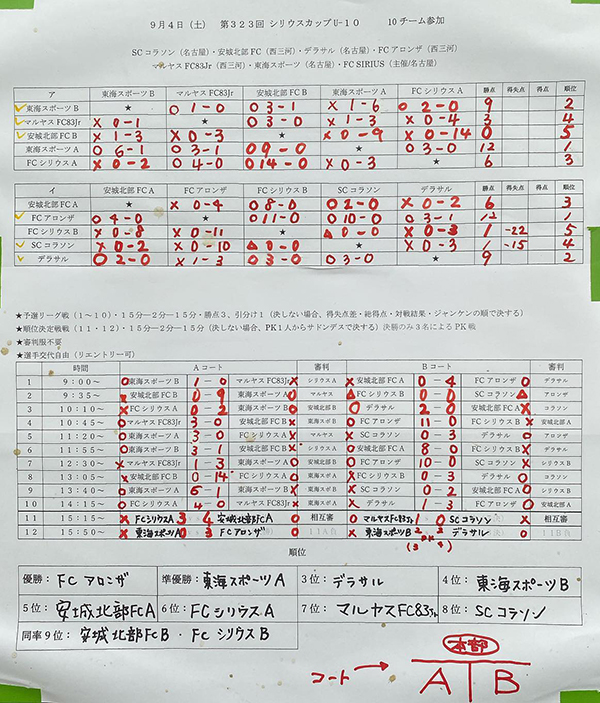 9月4日（土） 第323回 シリウスカップU-10 10チーム参加
SCコラソン（名古屋）・安城北部FC（西三河）・デラサル（名古屋）・FCアロンザ（西三河）
マルヤスFC83Jr（西三河）・東海スポーツ（名古屋）・FC SIRIUS（主催/名古屋）
ア 東海スポーツB マルヤスFC83Jr 安城北部FC B 東海スポーツA FCシリウスA 勝点 得失点 得点 順位
東海スポーツB ★ ○1-0 ○3-1 ×1-6 ○2-0 9 2
マルヤスFC83Jr ×0-1 ★ ○3-0 ×1-3 ×0-4 3 4
安城北部FC B ×1-3 ×0-3 ★ ×0-9 ×0-14 0 5
東海スポーツA ○6-1 ○3-1 ○9-0 ★ ○3-0 12 1
FCシリウスA ×0-2 ○4-0 ○14-0 ×0-3 ★ 6 3
イ 安城北部FC A FCアロンザ FCシリウスB SCコラソン デラサル 勝点 得失点 得点 順位
安城北部FC A ★ ×0-4 ○8-0 ○2-0 ×0-2 6 3
FCアロンザ ○4-0 ★ ○11-0 ○10-0 ○3-1 12 1
FCシリウスB ×0-8 ×0-11 ★ △0-0 ×0-3 1 -22 5
SCコラソン ×0-2 ×0-10 △0-0 ★ ×0-3 1 -15 4
デラサル ○2-0 ×1-3 ○3-0 ○3-0 ★ 9 2
★予選リーグ戦（1～10）・15分―2分―15分・勝点3、引分け1（決しない場合、得失点差・総得点・対戦結果・ジャンケンの順で決する）
★順位決定戦戦（11・12）・15分―2分―15分（決しない場合、PK1人からサドンデスで決する）決勝のみ3名によるPK戦
★審判服不要
★選手交代自由（リエントリー可）
時間 Aコート 審判 Bコート 審判
1 9:00～ ○東海スポーツB 1-0 マルヤスFC83Jr× シリウスA ×安城北部FC A 0-4 FCアロンザ○ デラサル
2 9:35～ ×安城北部FC B 0-9 東海スポーツA○ マルヤス △FCシリウスB 0-0 SCコラソン△ アロンザ
3 10:10～ ×FCシリウスA 0-2 東海スポーツB○ 安城北部B ○デラサル 2-0 安城北部FC A× コラソン
4 10:45～ ○マルヤスFC83Jr 3-0 安城北部FC B× 東海スポA ○FCアロンザ 11-0 FCシリウスB× 安城北部A
5 11:20～ ○東海スポーツA 3-0 FCシリウスA× マルヤス ×SCコラソン 0-3 デラサル○ アロンザ
6 11:55～ ○東海スポーツB 3-1 安城北部FC B× シリウスA ○安城北部FC A 8-0 FCシリウスB× デラサル
7 12:30～ ×マルヤスFC83Jr 1-3 東海スポーツA○ 安城北部B ○FCアロンザ 10-0 SCコラソン× シリウスB
8 13:05～ ×安城北部FC B 0-14 FCシリウスA○ 東海スポB ×FCシリウスB 0-3 デラサル○ コラソン
9 13:40～ ○東海スポーツA 6-1 東海スポーツB× シリウスA ×SCコラソン 0-2 安城北部FC A○ シリウスB
10 14:15～ ○FCシリウスA 4-0 マルヤスFC83Jr× 東海スポA ×デラサル 1-3 FCアロンザ○ 安城北部A
11 15:15～ ×FCシリウスA 3-4 安城北部FCA○ 相互審 ○マルヤスFC83Jr 1-0 SCコラソン× 相互審
12 15:50～ ×東海スポーツA 0-3 FCアロンザ○ 11A負 ×東海スポーツB 2-2 デラサル○ 11B負
(3 PK 4)
順位
優勝：FCアロンザ 準優勝：東海スポーツA 3位：デラサル 4位：東海スポーツB
5位：安城北部FCA 6位：FCシリウスA 7位：マルヤスFC83Jr 8位：SCコラソン
同率9位：安城北部FCB・FCシリウスB
本部
コート→ A B